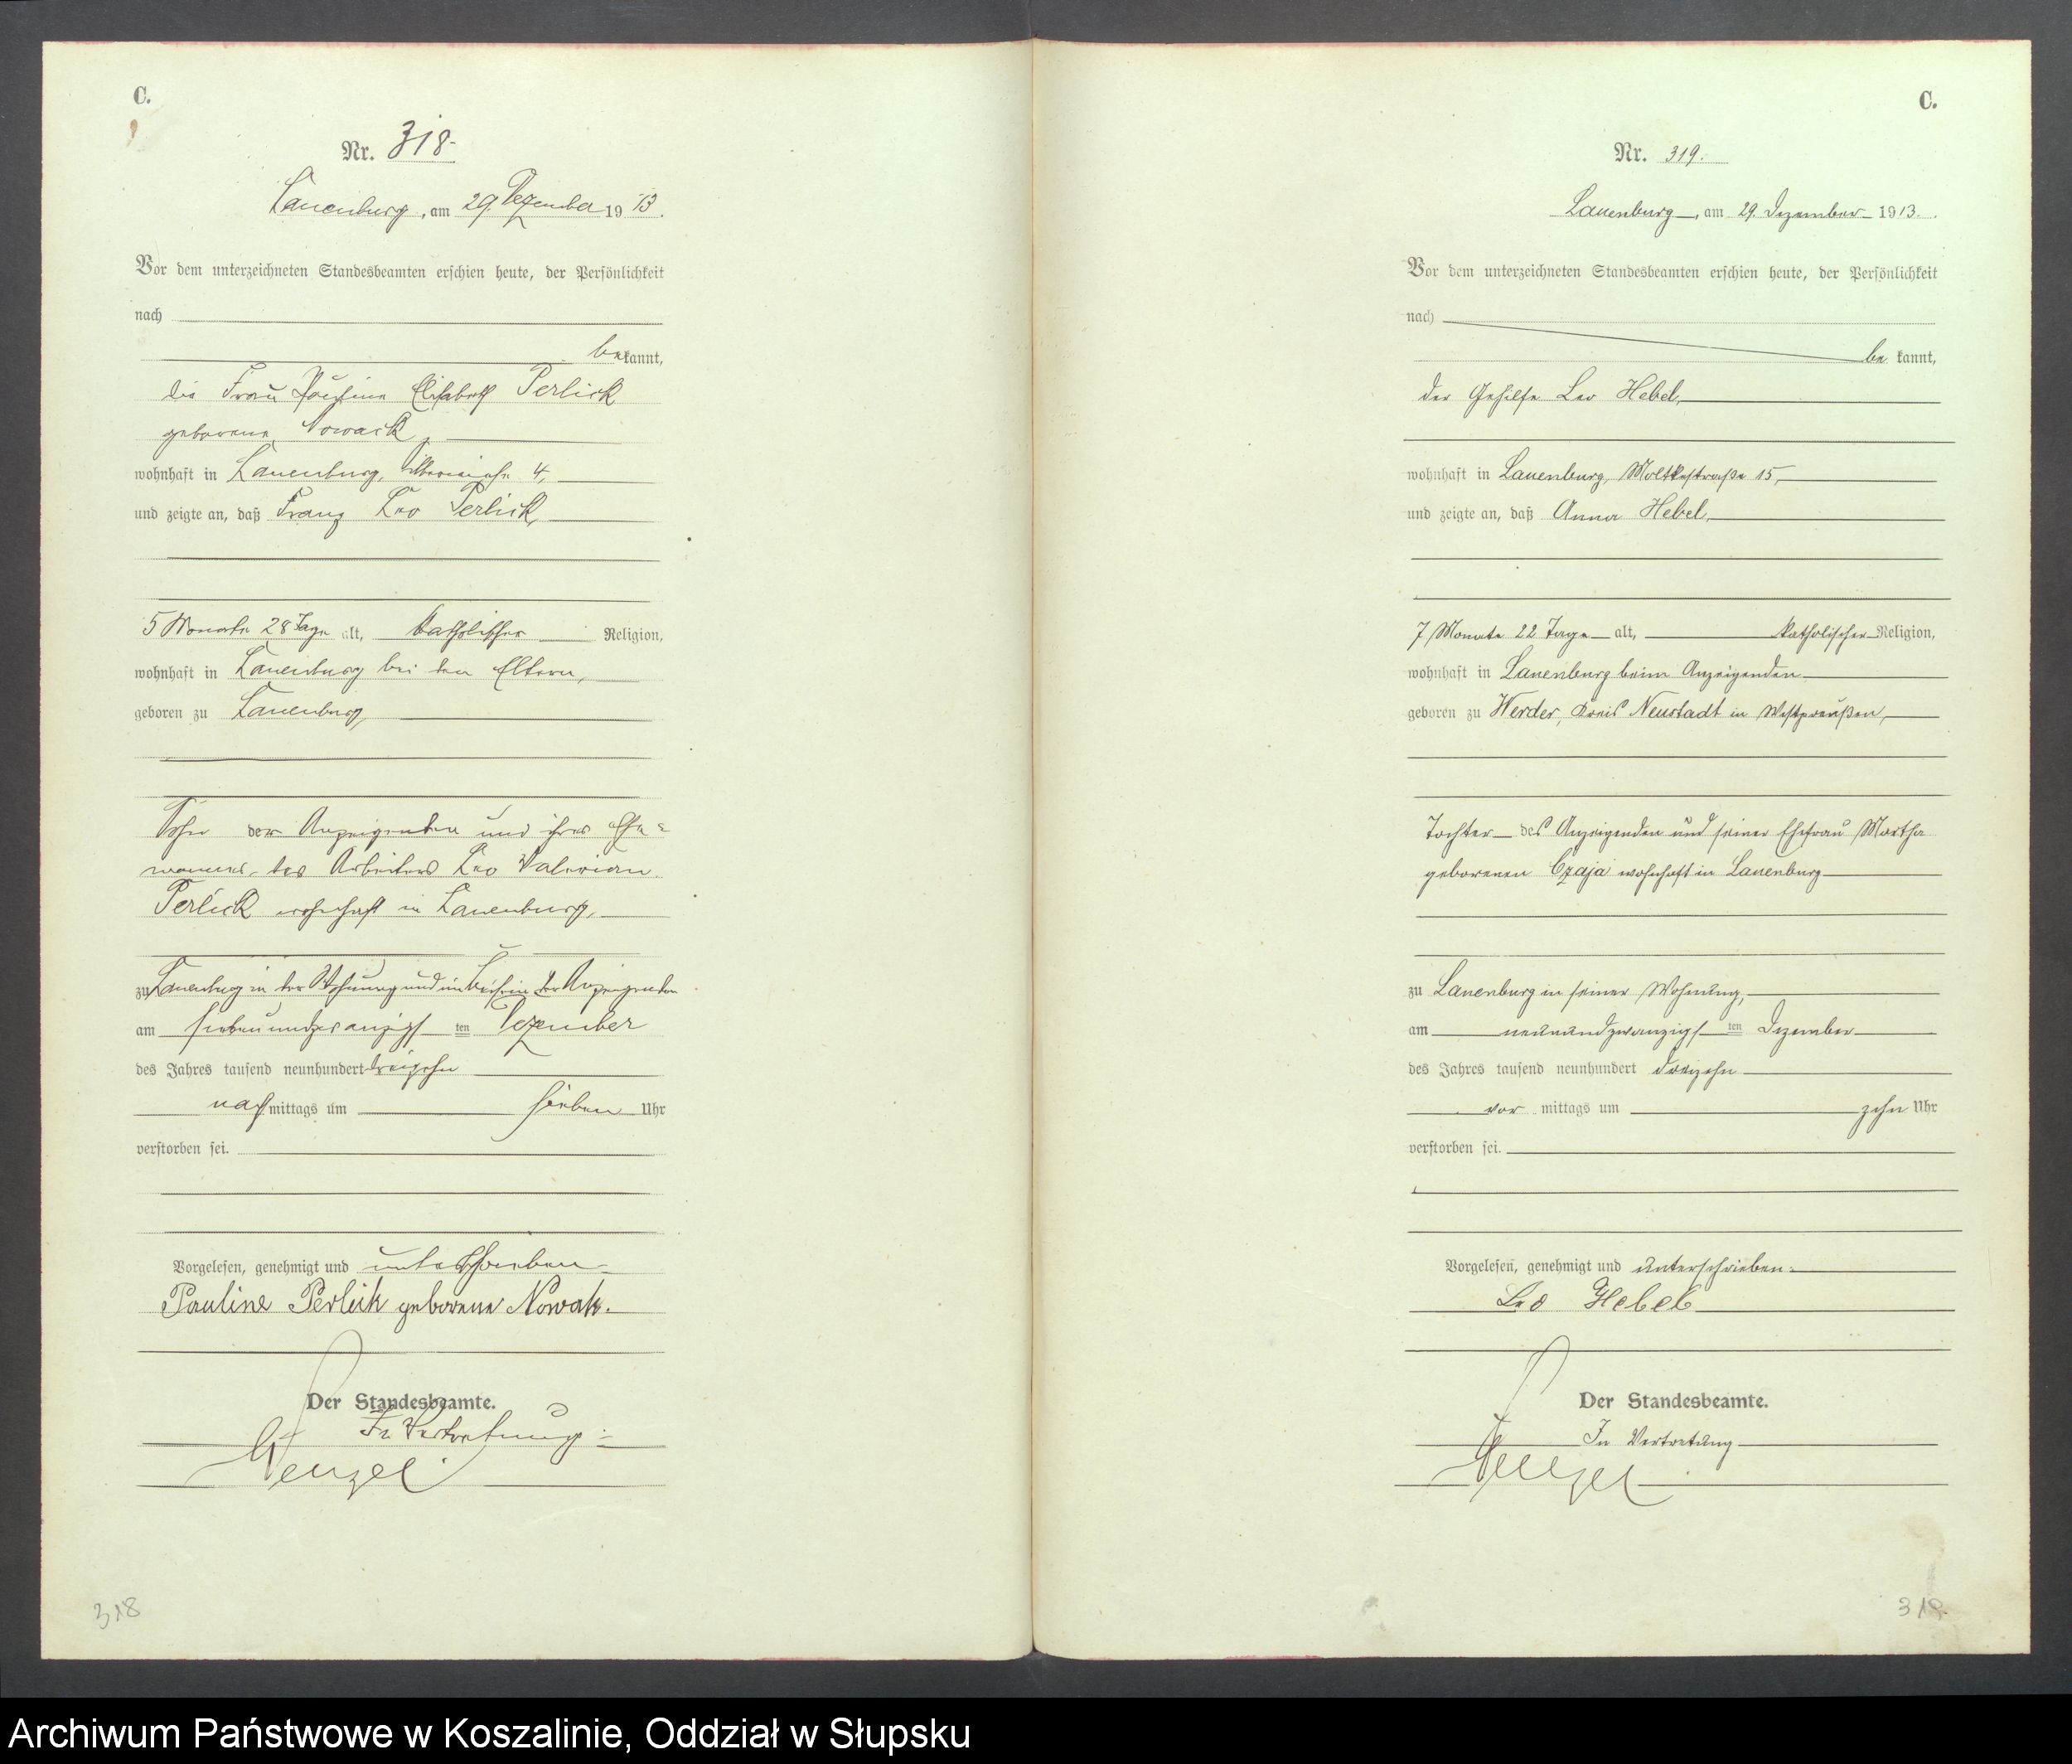 C.
Nr. 318.
Lauenburg, am 29. Dezember 1913.
Vor dem unterzeichneten Standesbeamten erschien heute, der Persönlichkeit
nach
bekannt,
die Frau Pauline Elisabeth Perlick
geborene Nowack,
wohnhaft in Lauenburg, 4,
und zeigte an, daß Franz Leo Perlick,
5 Monate 28 Tage alt, katholischer Religion,
wohnhaft in Lauenburg bei den Eltern,
geboren zu Lauenburg,
Sohn der Anzeigenden und ihres Ehe-
mannes, des Arbeiters Leo Valerian
Perlick wohnhaft in Lauenburg,
zu Lauenburg in der Wohnung und im Beisein der Anzeigenden
am siebenundzwanzigsten Dezember
des Jahres tausend neunhundert dreizehn
nachmittags um sieben Uhr
verstorben sei.
Vorgelesen, genehmigt und unterschrieben
Pauline Perlick geborene Nowak.
Der Standesbeamte.
In Vertretung:
Wenzel
318
C.
Nr. 319.
Lauenburg, am 29. Dezember 1913.
Vor dem unterzeichneten Standesbeamten erschien heute, der Persönlichkeit
nach
bekannt,
der Gehilfe Leo Hebel,
wohnhaft in Lauenburg, Moltkestraße 15,
und zeigte an, daß Anna Hebel,
7 Monate 22 Tage alt, katholischer Religion,
wohnhaft in Lauenburg beim Anzeigenden
geboren zu Werder, Kreis Neustadt in Westpreußen,
Tochter des Anzeigenden und seiner Ehefrau Martha
geborenen Czaja wohnhaft in Lauenburg
zu Lauenburg in seiner Wohnung,
am neunundzwanzigsten Dezember
des Jahres tausend neunhundert dreizehn
vor mittags um zehn Uhr
verstorben sei.
Vorgelesen, genehmigt und unterschrieben.
Leo Hebel
Der Standesbeamte.
In Vertretung
Wenzel
319.
Archiwum Państwowe w Koszalinie, Oddział w Słupsku